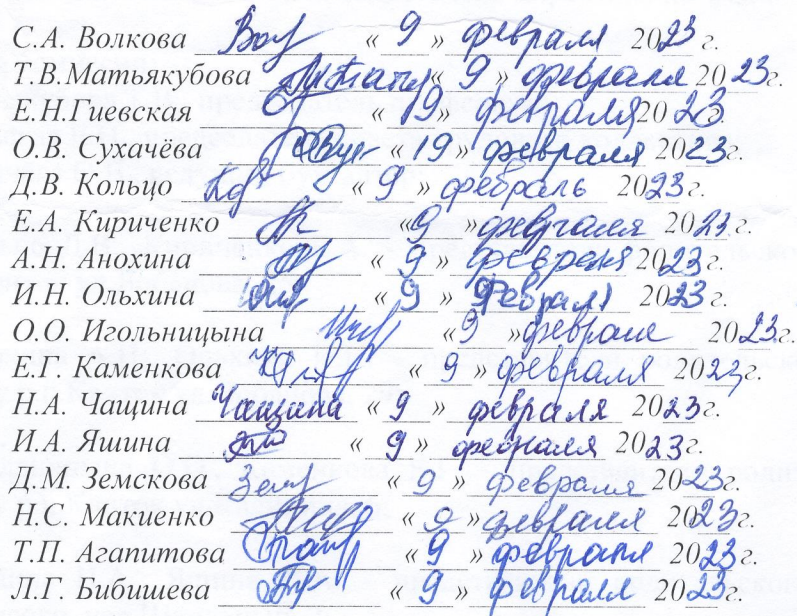 С.А. Волкова « 9 » февраля 2023 г.
Т.В.Матьякубова « 9 » февраля 20 23г.
Е.Н.Гиевская « 19 » февраля 20 23.
О.В. Сухачёва « 19 » февраля 2023г.
Д.В. Кольцо « 9 » февраль 2023г.
Е.А. Кириченко «9 » февраля 2023г.
А.Н. Анохина « 9 » февраля 2023г.
И.Н. Ольхина « 9 » февраля 2023г.
О.О. Игольницына «9 » февраля 2023г.
Е.Г. Каменкова « 9 » февраля 2023г.
Н.А. Чащина Чащина « 9 » февраля 2023г.
И.А. Яшина « 9 » февраля 2023г.
Д.М. Земскова « 9 » февраля 2023г.
Н.С. Макиенко « 9 » февраля 2023г.
Т.П. Агапитова « 9 » февраля 2023г.
Л.Г. Бибишева « 9 » февраля 2023г.